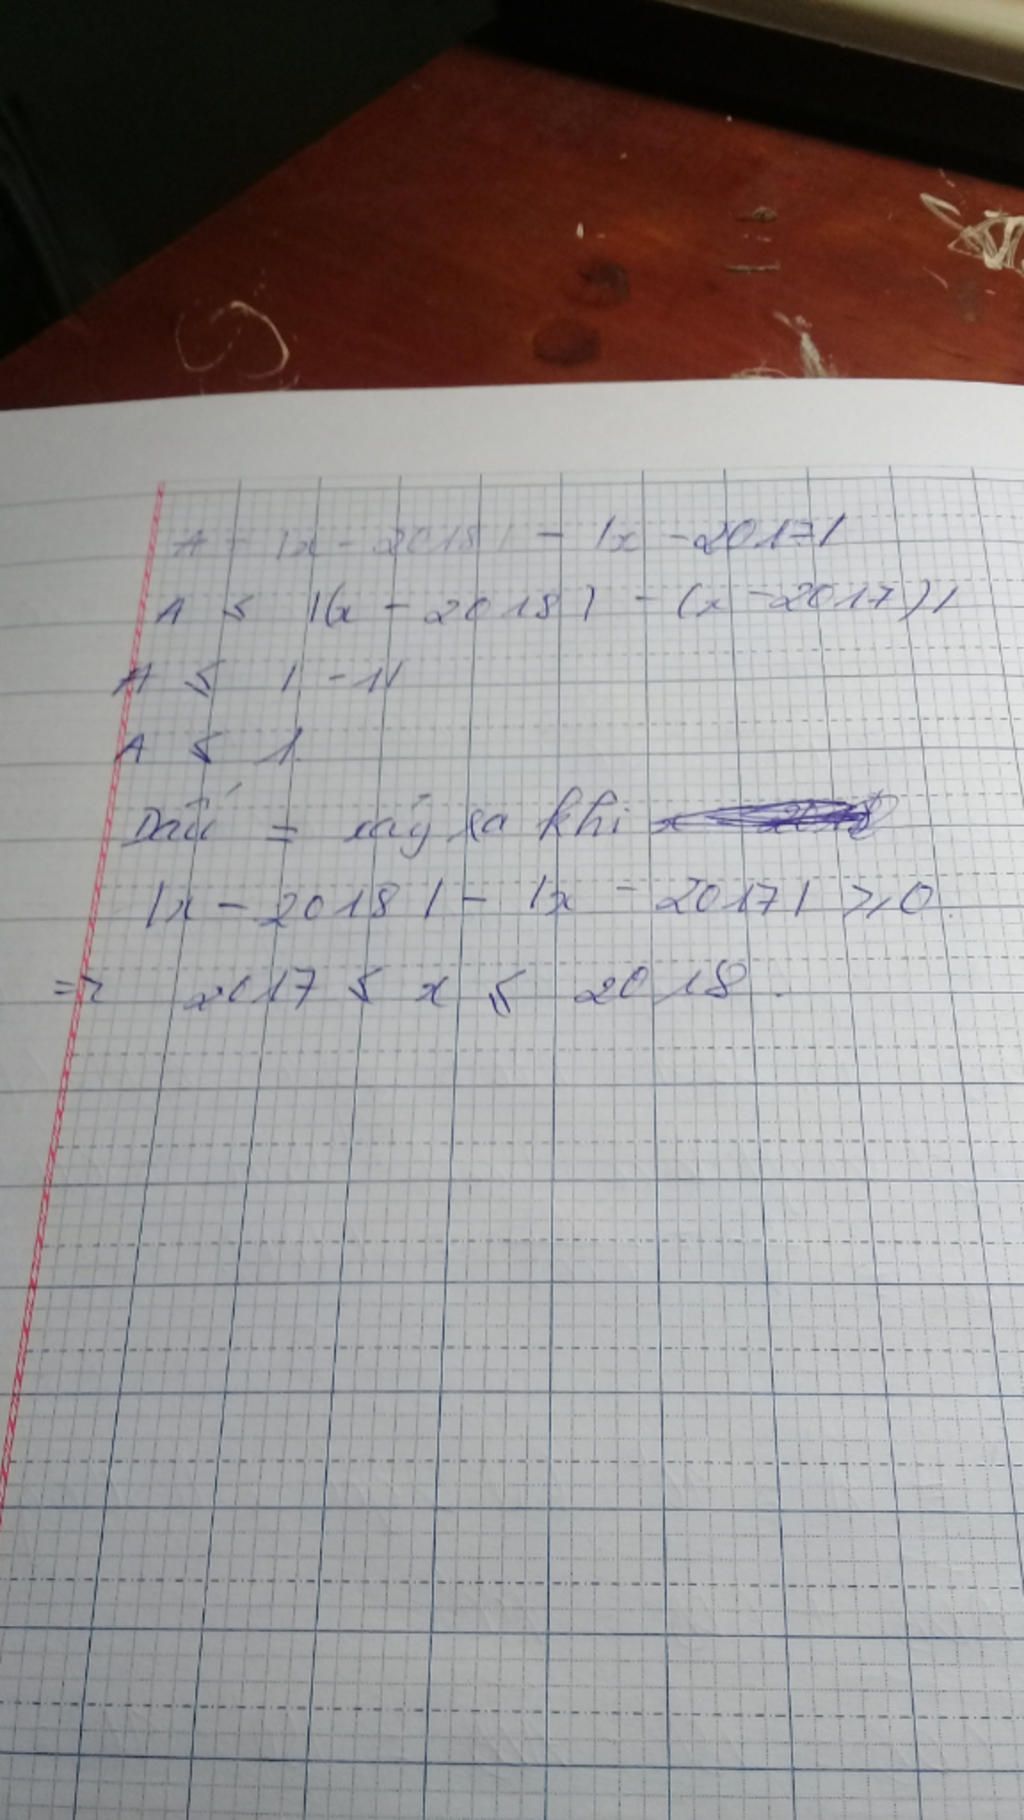 A = |x - 2018| - |x - 2017|
A ≤ |(x - 2018) - (x - 2017)|
A ≤ |-1|
A ≤ 1
Dấu = xảy ra khi
|x - 2018| - |x - 2017| ≥ 0.
=> 2017 ≤ x ≤ 2018.